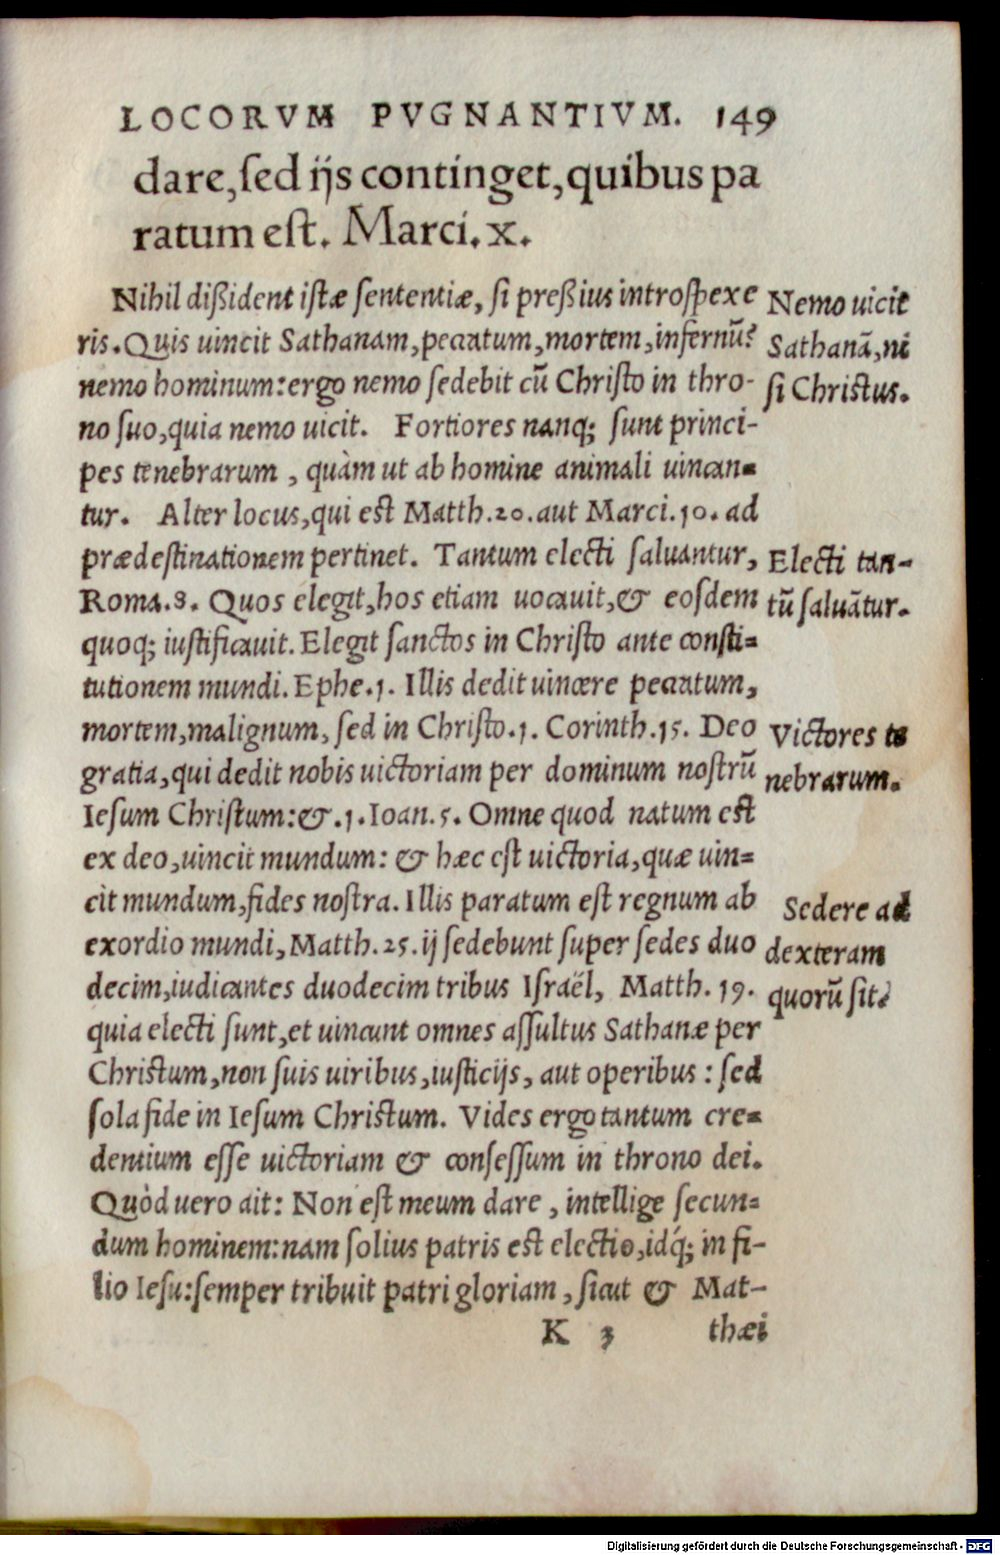 LOCORVM PVGNANTIVM. 149
dare, sed ijs continget, quibus pa
ratum est. Marci. x.
Nihil dißident istæ sententiæ, si preßius introspexe
ris. Quis uincit Sathanam, peccatum, mortem, infernũ?
nemo hominum: ergo nemo sedebit cũ Christo in thro-
no suo, quia nemo uicit. Fortiores nanq; sunt princi-
pes tenebrarum, quàm ut ab homine animali uincan=
tur. Alter locus, qui est Matth. 20. aut Marci. 10. ad
prædestinationem pertinet. Tantum electi saluantur,
Roma. 8. Quos elegit, hos etiam uocauit, & eosdem
quoq; iustificauit. Elegit sanctos in Christo ante consti=
tutionem mundi. Ephe. 1. Illis dedit uincere peccatum,
mortem, malignum, sed in Christo. 1. Corinth. 15. Deo
gratia, qui dedit nobis uictoriam per dominum nostrũ
Iesum Christum: &. 1. Ioan. 5. Omne quod natum est
ex deo, uincit mundum: & hæc est uictoria, quæ uin=
cit mundum, fides nostra. Illis paratum est regnum ab
exordio mundi, Matth. 25. ij sedebunt super sedes duo
decim, iudicantes duodecim tribus Israël, Matth. 19.
quia electi sunt, et uincunt omnes assultus Sathanæ per
Christum, non suis uiribus, iusticijs, aut operibus: sed
sola fide in Iesum Christum. Vides ergo tantum cre=
dentium esse uictoriam & consessum in throno dei.
Quòd uero ait: Non est meum dare, intellige secun=
dum hominem: nam solius patris est electio, idq́; in fi-
lio Iesu: semper tribuit patri gloriam, sicut & Mat-
K 3 thæi
Nemo uicit
Sathanã, ni
si Christus.
Electi tan-
tũ saluãtur.
Victores te
nebrarum.
Sedere ad
dexteram
quorũ sit?
Digitalisierung gefördert durch die Deutsche Forschungsgemeinschaft - DFG